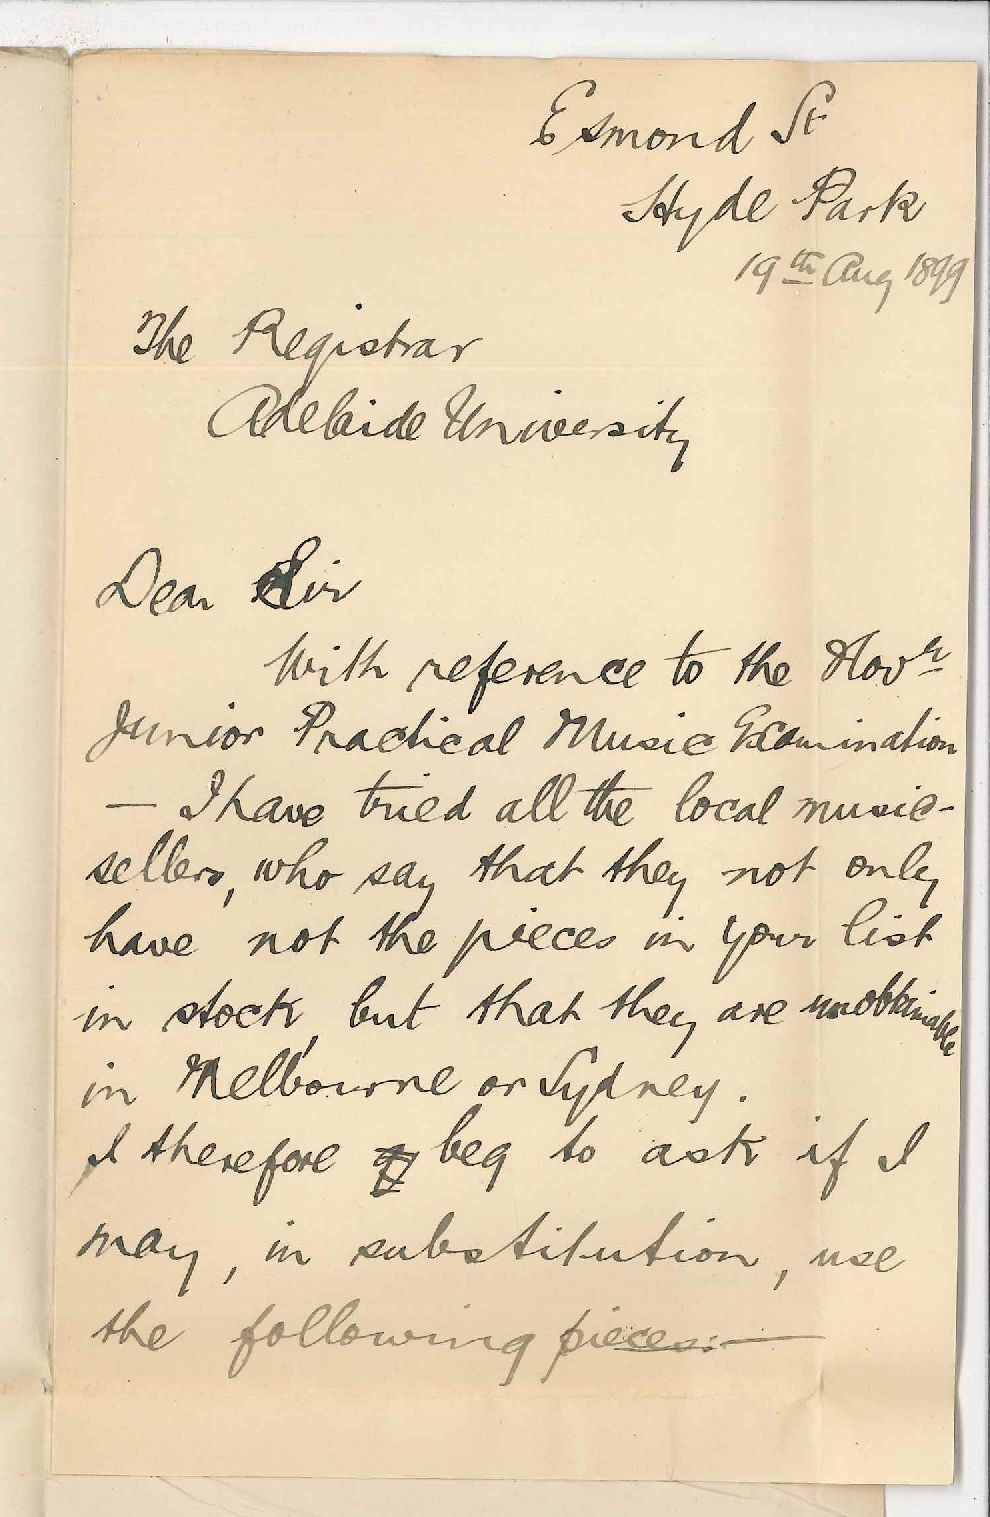 Esmond St
Hyde Park
19th Aug 1899
The Registrar
Adelaide University
Dear Sir
With reference to the Novr
Junior Practical Music Examination
— I have tried all the local music-
sellers, who say that they not only
have not the pieces in your list
in stock, but that they are unobtainable
in Melbourne or Sydney.
I therefore beg to ask if I
may, in substitution, use
the following pieces:—